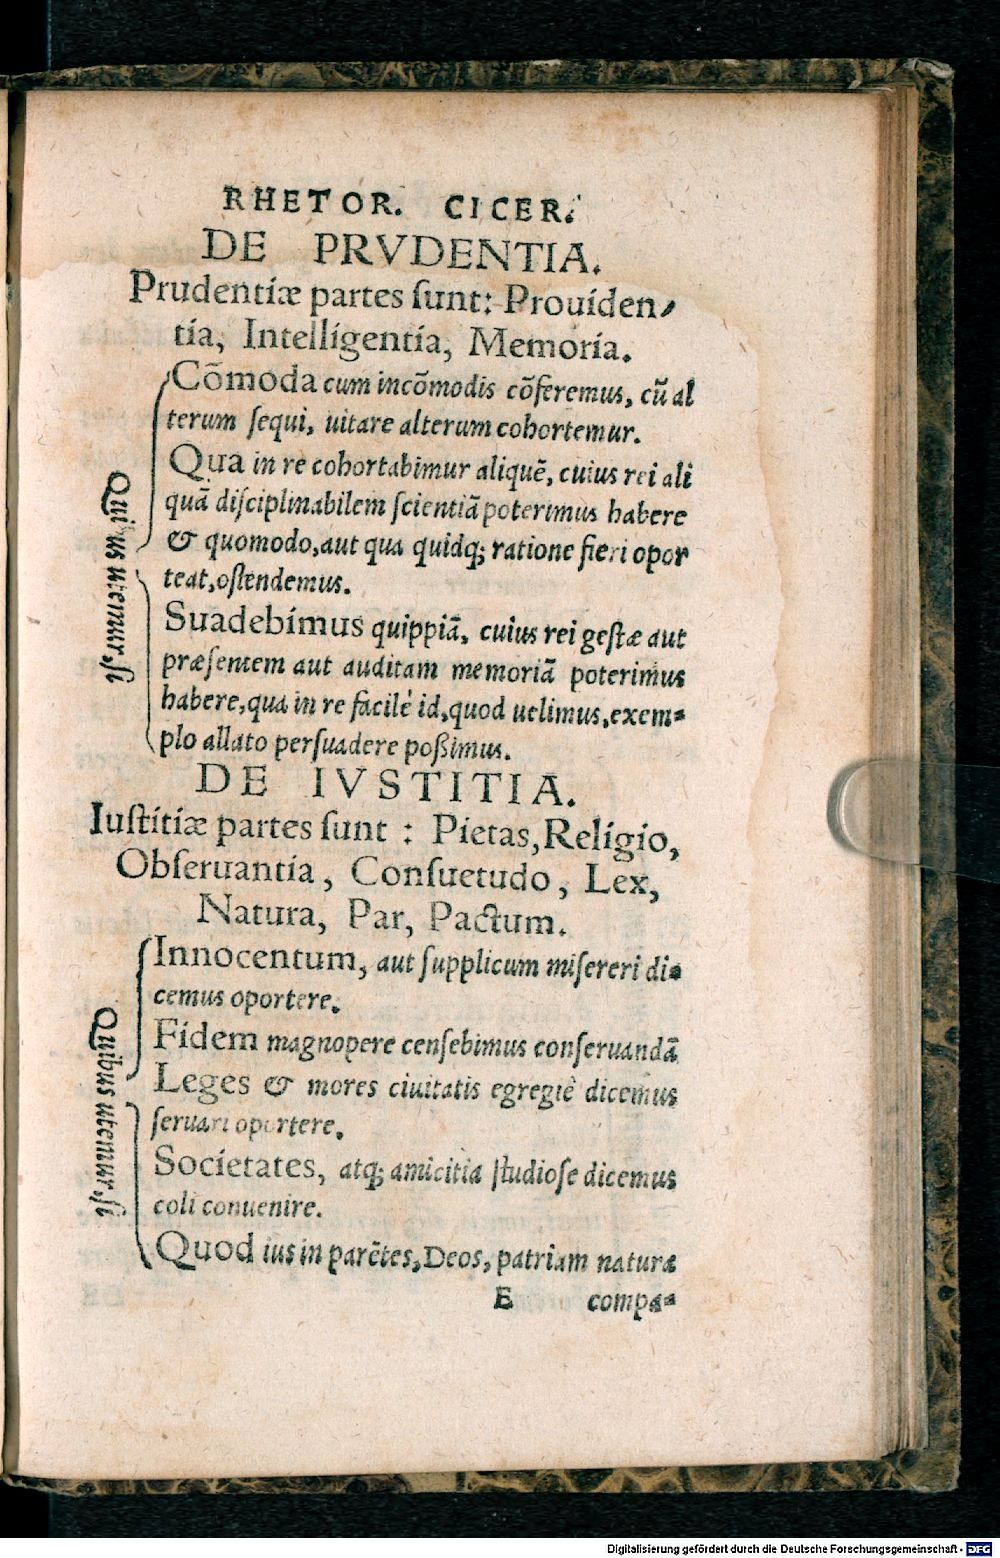 RHETOR. CICER.
DE PRVDENTIA.
Prudentiæ partes sunt: Prouiden⸗
tia, Intelligentia, Memoria.
Quibus utemur, si
Cõmoda cum incõmodis cõferemus, cũ al
terum sequi, uitare alterum cohortemur.
Qua in re cohortabimur aliquẽ, cuius rei ali
quã disciplinabilem scientiã poterimus habere
& quomodo, aut qua quidq; ratione fieri opor
teat, ostendemus.
Suadebimus quippiã, cuius rei gestæ aut
præsentem aut auditam memoriã poterimus
habere, qua in re facilè id, quod uelimus, exem⸗
plo allato persuadere poßimus.
DE IVSTITIA.
Iustitiæ partes sunt : Pietas, Religio,
Obseruantia, Consuetudo, Lex,
Natura, Par, Pactum.
Quibus utemur, si
Innocentum, aut supplicum misereri di⸗
cemus oportere.
Fidem magnopere censebimus conseruandã
Leges & mores ciuitatis egregiè dicemus
seruari oportere.
Societates, atq; amicitia studiose dicemus
coli conuenire.
Quod ius in parẽtes, Deos, patriam natura
E compa⸗
Digitalisierung gefördert durch die Deutsche Forschungsgemeinschaft - DFG